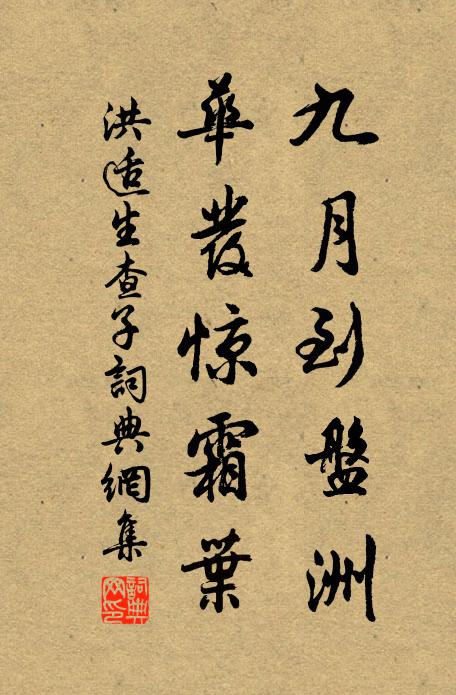 九月到盤洲
華發惊霜葉
洪适生查子詞典網集
詞典网印